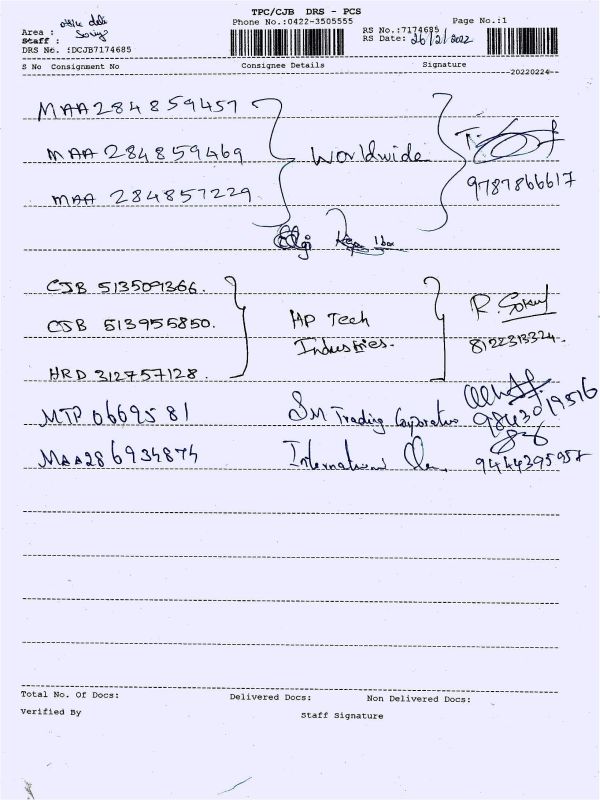 TPC/CJB DRS - PCS
Phone No.:0422-3505555
Page No.:1
Area :
Staff :
DRS No. :DCJB7174685
RS No.:7174685
RS Date: 26/2/2022
S No Consignment No Consignee Details Signature
20220224
MAA284859457
MAA 284859469 Worldwide
MAA 284857229 9787866617
CJB 513509366.
CJB 513955850. MP Tech R. Gokul
Industries. 8122313324.
HRD 312757128.
MTP 0669581 SM Trading Corporation 9843019516
MAA286934874 International 9444395957
Total No. Of Docs: Delivered Docs: Non Delivered Docs:
Verified By Staff Signature